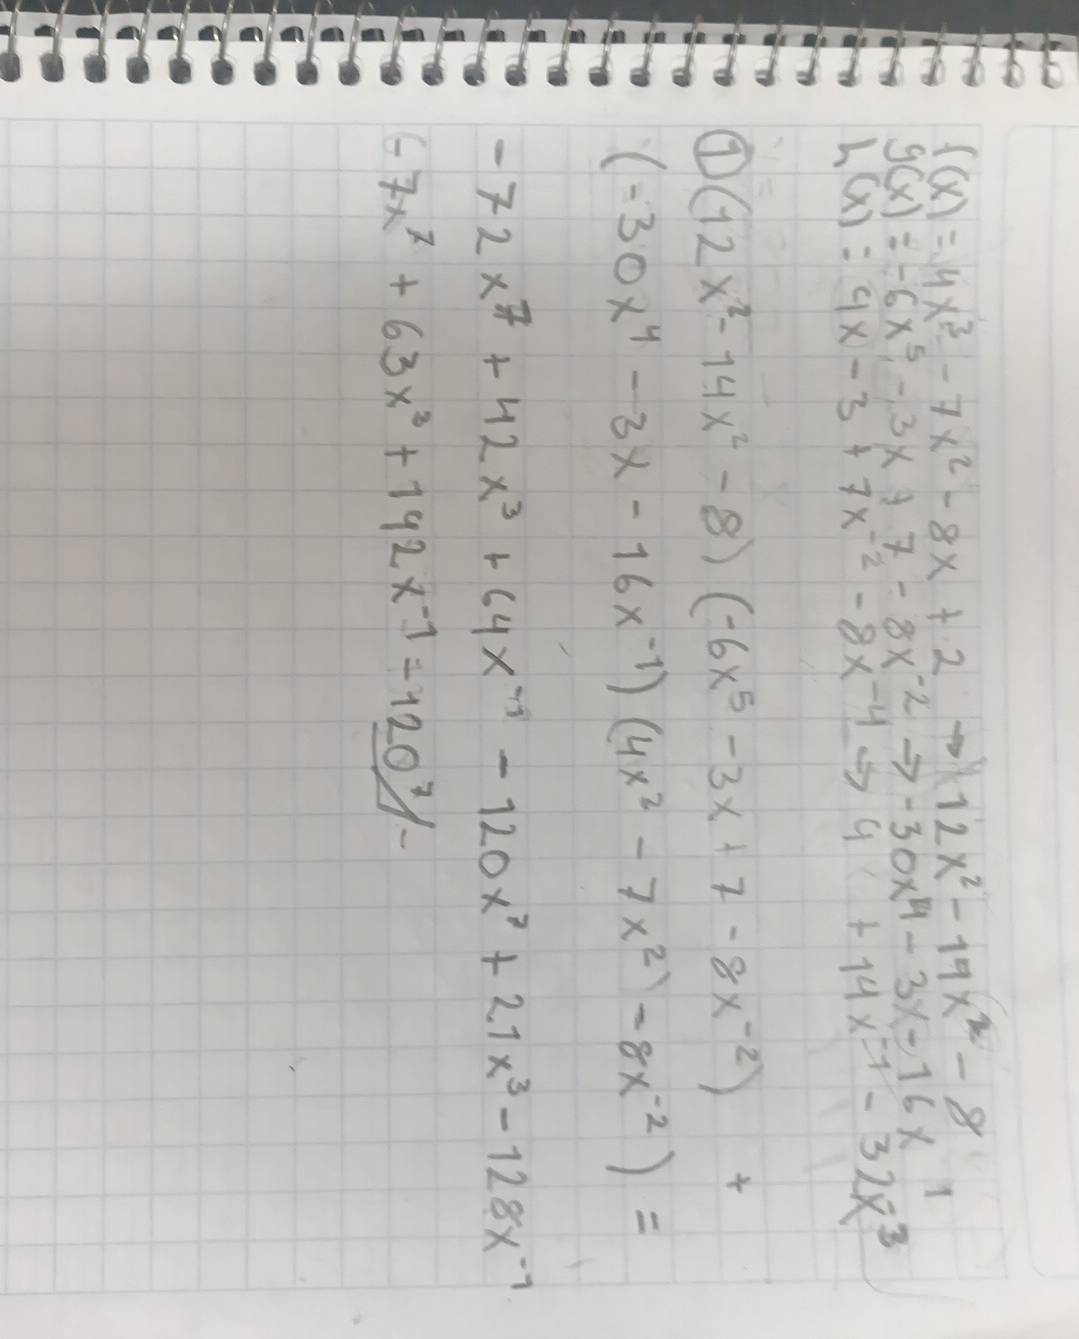 f(x) = 4x³ - 7x² - 8x + 2 → 12x² - 14x² - 8
g(x) = -6x⁵ - 3x + 7 - 8x⁻² → -30x⁴ - 3x - 16x⁻¹
h(x) = 4x - 3 + 7x⁻² - 8x⁻⁴ → 4 + 14x⁻¹ - 32x⁻³
① (12x² - 14x² - 8) (-6x⁵ - 3x + 7 - 8x⁻²) +
(-30x⁴ - 3x - 16x⁻¹) (4x² - 7x²) - 8x⁻²) =
-72x⁷ + 42x³ + 64x⁻¹ - 120x⁷ + 21x³ - 128x⁻¹
(-7x⁷ + 63x³ + 192x⁻¹ = 120⁷